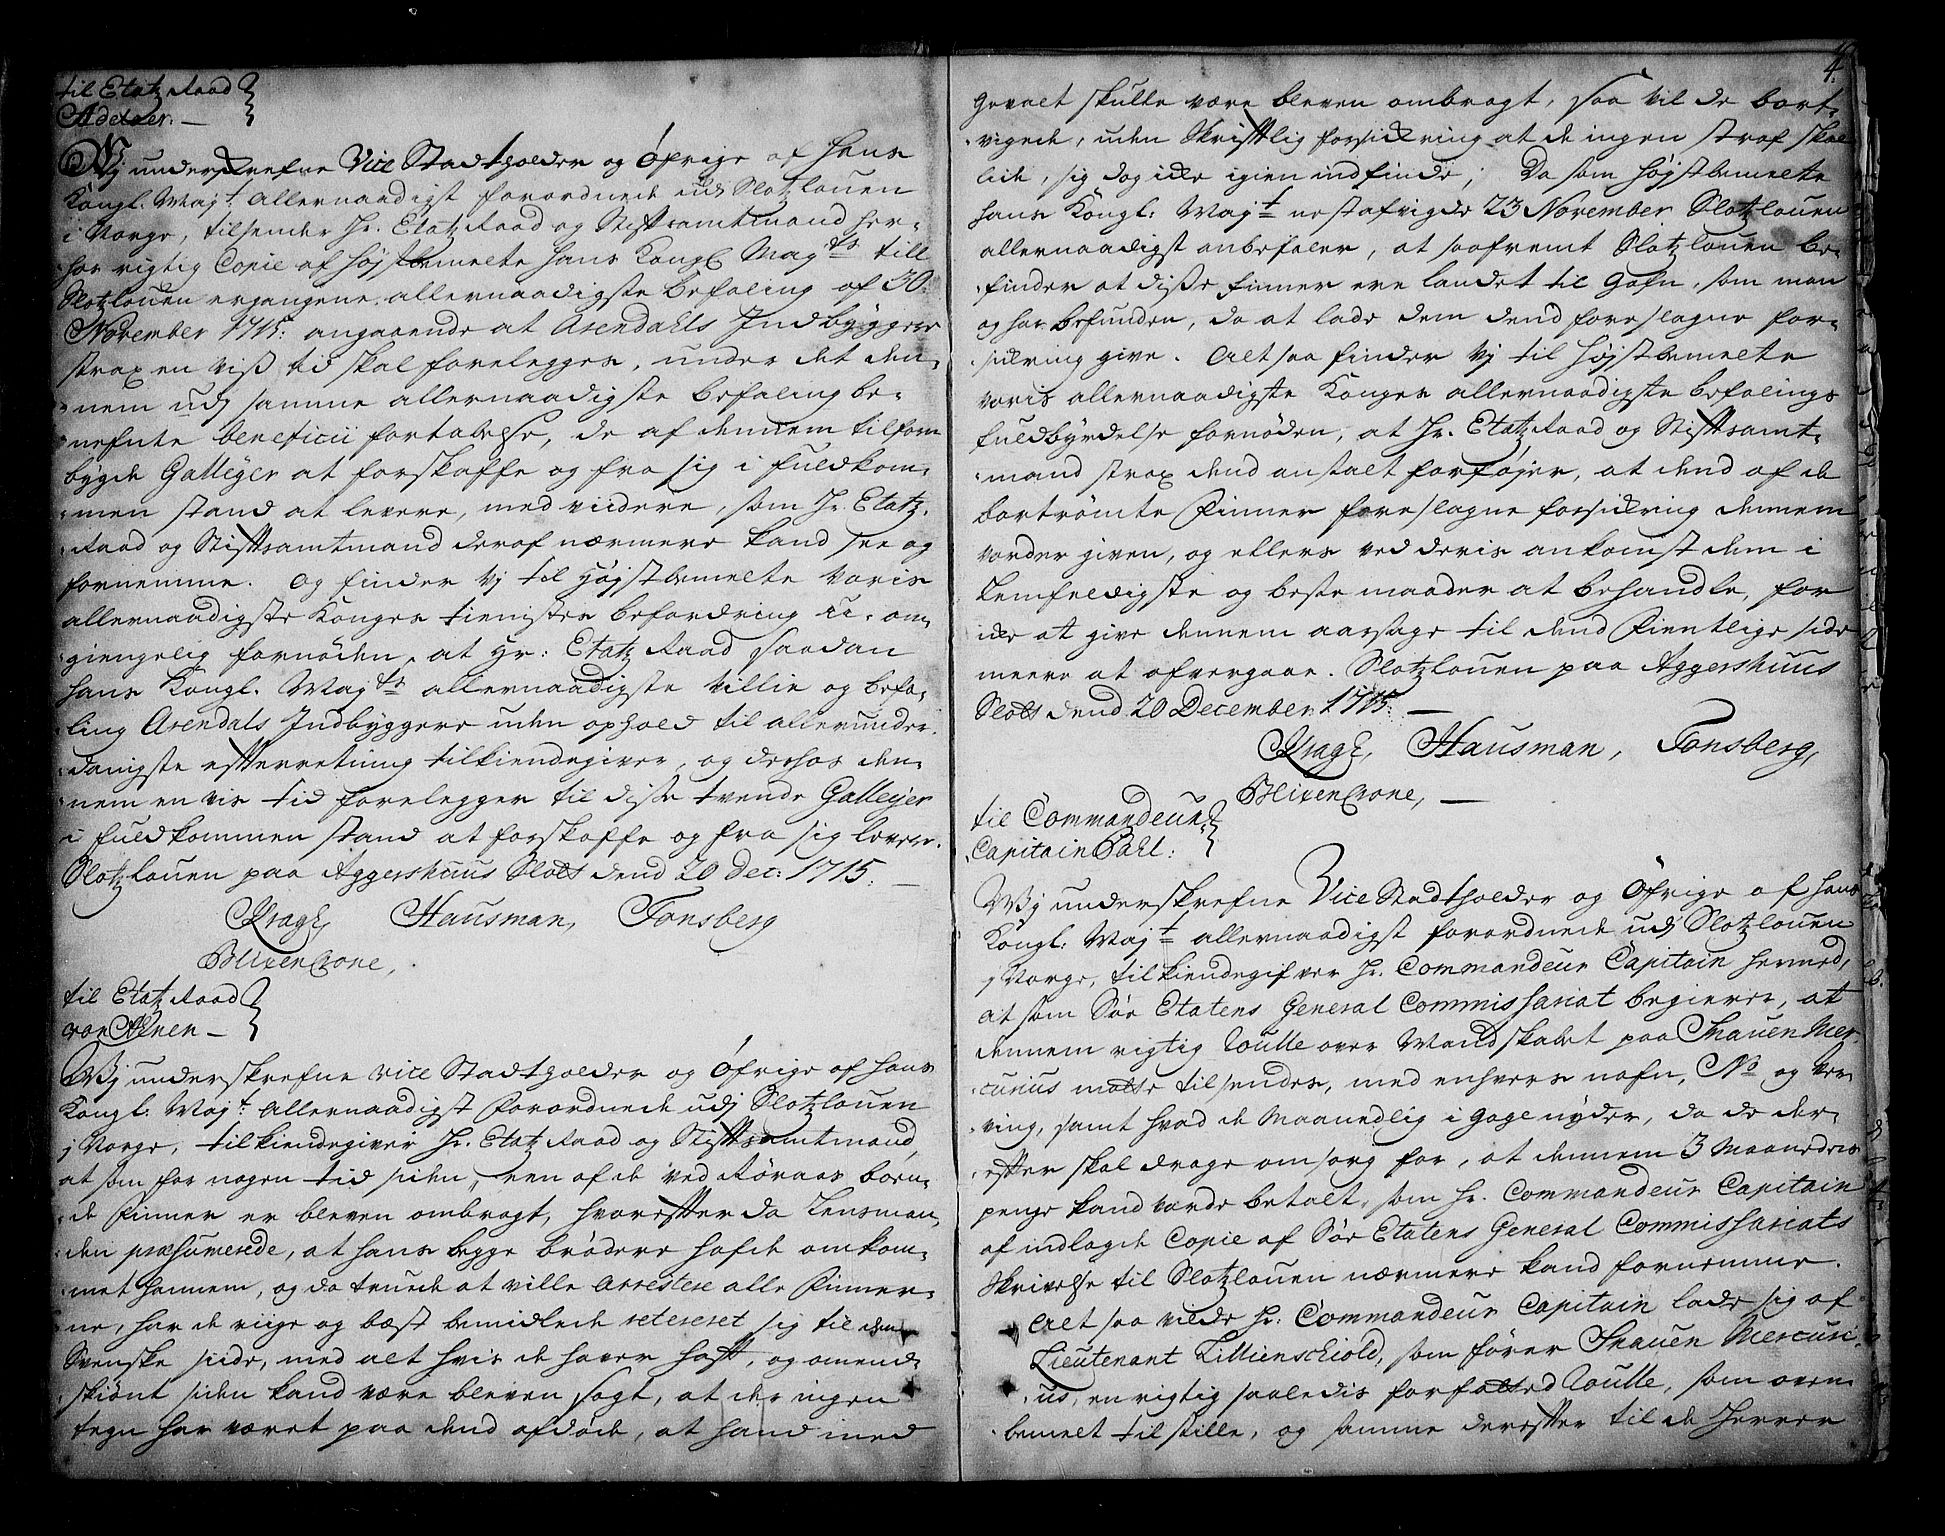 til Etatz Raad
Adeler. —
Vj underskrefne Vice Stadtholder og Öfrige af Hans
Kongl. Maj.t allernaadigst forordnede udj Slotzlouen
i Norge, tilsender Hr. Etatz Raad og Stiftsamtmand her-
hos rigtig Copie af højstbemelte hans Kongl Majts till
Slotzlouen ergangene allernaadigste befaling af 30.
November 1715: angaaende at Arendahls Indbyggere
strax en viss tid skal forelegges, under det den-
nem udj samme allernaadigste befaling be-
nefnte beneficii fortabelse, de af dennem tilforn
bygde Galleyer at forskaffe og fra sig i fuldkom-
men stand at levere, med videre, som Hr. Etatz-
Raad og Stiftsamtmand deraf nærmere kand see og
fornemme. og finder Vj til højstbemelte voris
allernaadigste Konges tienistes befordring u-om-
giengelig fornöden, at Hr: Etatz Raad saadan
hans Kongl. Majts allernaadigste villie og befa-
ling Arendals Indbyggere uden ophold til allerunder-
danigste efterretning tilkiendegiver, og derhos den-
nem en vis tid forelegger til disse tvende Galleyer
i fuldkommen stand at forskaffe og fra sig levere.
Slotzlouen paa Aggershuus Slott dend 20 Dec: 1715. —
Kragh, Hausman, Tonsberg
BlixenCrone,
til Etatz Raad
von Ahnen —
Wj underskrefne vice Stadtholder og Öfrige af Hans
Kongl. Maj.t Allernaadigst Forordnede udj Slotzlouen
j Norge, tilkiendegiver Hr. Etatz Raad og Stiftsamtmand,
at som for nogen tid siden, een af de ved Röraas boen-
de Finner er bleven ombragt, hvorefter da Lensman-
den præsumerede, at hans begge brödere hafde omkom-
met hannem, og da truede at ville Arrestere alle Finner-
ne, har de rige og best bemidlede retereret sig til den
Svenske side, med alt hvis de haver haft, og omend-
skiönt siden kand være bleven sagt, at der ingen
tegn har været paa dend afdöde, at hand med
4.
Gevalt skulle være bleven ombragt, saa vil de bort-
vigede, uden Skriftlig forsikring at de ingen straf skal
lide, sig dog icke igien indfinde; Da som højstbemelte
hans Kongl: Maj.t nestafvigde 23 November Slotzlouen
allernaadigst anbefaler, at saafremt Slotzlouen be-
finder at disse Finner ere landet til Gafn, som man
og har befunden, da at lade dem dend foreslagne for-
sikring give. Alt saa finder Vj til højstbemelte
voris allernaadigste Konges allernaadigste befalings
fuldbyrdelse fornöden, at Hr. Etatz Raad og Stiftsamt-
mand strax dend anstalt forföjer, at dend af de
bortrömte Finner foreslagne forsikring dennem
vorder given, og ellers ved deris ankomst dem i
Lemfeldigste og beste maader at behandle, for
icke at give dennem aarsage til dend Fientlige side
meere at ofvergaae. Slotzlouen paa Aggershuus
Slott dend 20 December 1715. —
Kragh, Hausman, Tonsberg,
BlixenCrone, —
til Commandeur
Capitain Pahl:
Wj underskrefne Vice Stadtholder og Öfrige af Hans
Kongl: Maj.t allernaadigst forordnede udj Slotzlouen
j Norge, tilkiendegifver Hr. Commandeur Capitain hermed,
at som Söe Etatens General Commissariat begierer, at
dennem rigtig Roulle over Mandskabet paa Snauen Mer-
curius motte tilsendes, med enhvers nafn, No og Her-
ving, samt hvad de Maanedlig i Gage nyder, da de der-
efter skal drage omsorg for, at dennem 3 Maaneders
penge kand vorde betalt, som Hr. Commandeur Capitain
af indlagde Copie af Söe Etatens General Commissariats
Skrivelse til Slotzlouen nærmere kand fornemme.
Alt saa vilde Hr. Commandeur Capitain lade sig af
Lieutenant Lillienschiold, som förer Snauen Mercuri-
us, en rigtig saaledis forfatted Roulle, som oven-
bemelt tilstille, og samme derefter til de Herrer